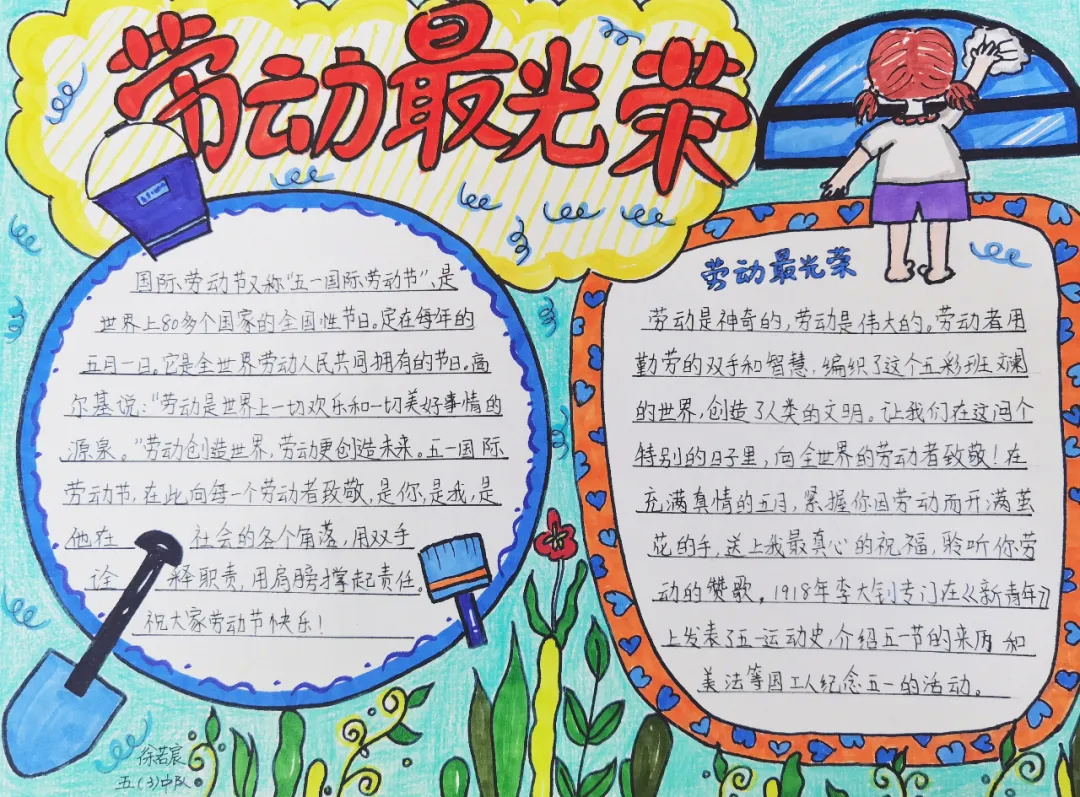 劳动最光荣
国际劳动节又称“五一国际劳动节”、是
世界上80多个国家的全国性节日。定在每年的
五月一日。它是全世界劳动人民共同拥有的节日。高
尔基说:“劳动是世界上一切欢乐和一切美好事情的
源泉。”劳动创造世界,劳动更创造未来。五一国际
劳动节,在此向每一个劳动者致敬,是你,是我,是
他在 社会的各个角落,用双手
诠 释职责,用肩膀撑起责任。
祝大家劳动节快乐!
劳动最光荣
劳动是神奇的,劳动是伟大的。劳动者用
勤劳的双手和智慧,编织了这个五彩班斓
的世界,创造了人类的文明。让我们在这个
特别的日子里,向全世界的劳动者致敬!在
充满真情的五月,紧握你因劳动而开满茧
花的手,送上我最真心的祝福,聆听你劳
动的赞歌。1918年李大钊专门在《新青年》
上发表了五一运动史,介绍五一节的来历和
美法等国工人纪念五一的活动。
徐若宸
五(3)中队